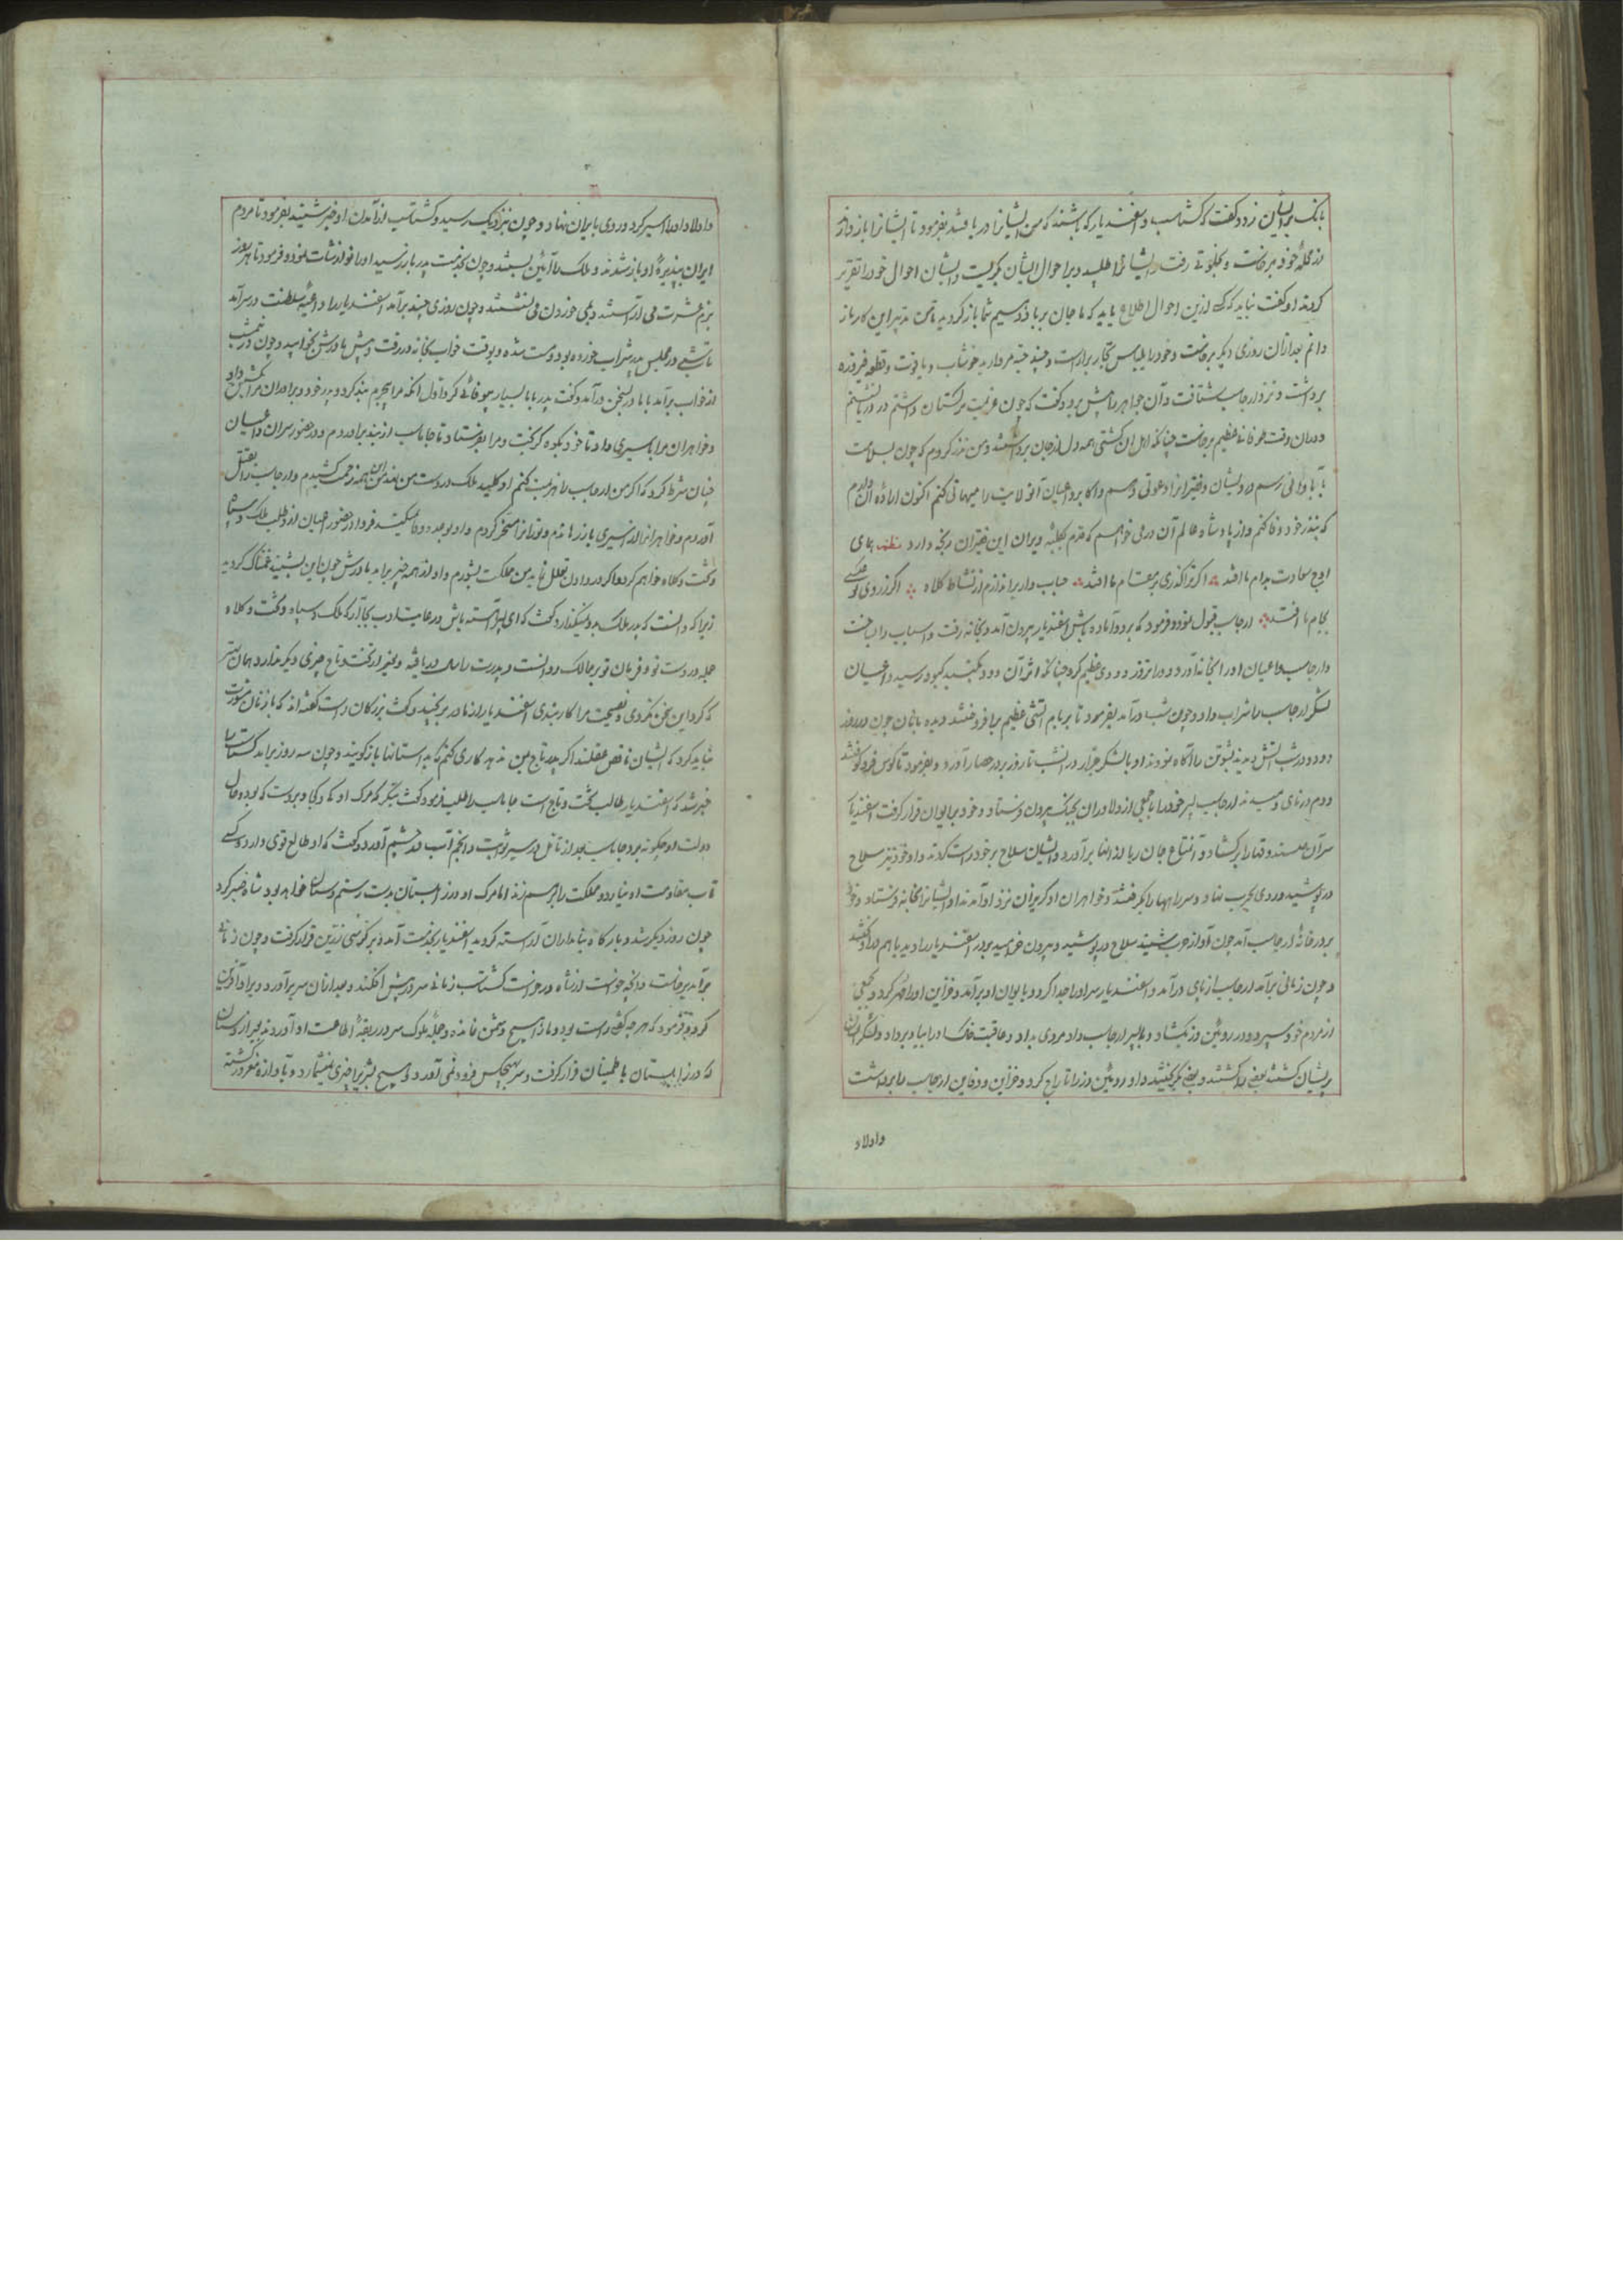 بانک برایشان زد و گفت که گشتاسب و اسفندیار که باشند که من ایشانرا دریافتند بفرمود تا ایشانرا باز دارند
از محلهٔ خود برخاست و بخلوتی رفت ایشانرا طلبید و بر احوال ایشان بگریست و ایشان احوال خود را تقریر
کردند او گفت نباید که کسی ازین احوال اطلاع یابد که ما جان بر باد دهیم شما باز گردید تا من تدبیر این کار باز
دانم بعد از آن روزی دیگر برخاست و خود را بلباس تجار براراست و چند حبه مروارید خوشاب و یاقوت و قطعه فیروزه
برداشت و نزد ارجاسب شتافت و آن جواهر را پیش برد و گفت که چون عزیمت ترکستان داشتم در دریا نشستم
دران وقت طوفانی عظیم برخاست چنانکه اهل آن کشتی همه دل از جان برداشتند و من نذر کردم که چون بسلامت
بآبادانی رسم درویشان و فقیرانرا دعوتی دهم و اکابر و اعیان آنولایت را میهمانی کنم اکنون اراده آن دارم
که بنذر خود وفا کنم و از پادشاه عالم آن درمی خواهم که قدم بکلبه ویران این فقیران رنجه دارد نظم همای
اوج سعادت بدام ما افتد اگر ترا گذری بر مقام ما افتد حباب وار براندازم از نشاط کلاه اگر ز روی تو عکسی
بجام ما افتد ارجاسب قبول نمود و فرمود که برو و آماده باش اسفندیار بیرون آمد و بخانه رفت و اسباب را بساخت
و ارجاسب و اعیان او را بخانه آورد و دود عظیم کرد چنانکه اثر آن دود بگنبد کبود رسید و اعیان
لشکر ارجاسب را شراب داد و چون شب درآمد بفرمود تا بر بام آتشی عظیم برافروختند دیده بانان چون در روز
دود و در شب آتش دیدند پشوتن را آگاه نمودند او با لشکر جرار در انشب تا روز بر در حصار آورد و بفرمود تا کوس فرو کوفتند
و دم در نای دمیدند ارجاسب پسر خود را با جمعی از دلاوران بجنگ بیرون فرستاد و خود بر ایوان قرار گرفت اسفندیار
سر آن صندوقها را برگشاد و آن شجاع جان ربا از آنها برآورد و ایشان سلاح بر خود راست کردند و او خود نیز سلاح
در پوشید و روی بحرب نهاد و سر راهها را بگرفتند و خواهران او گریزان نزد او آمدند او ایشانرا بخانه فرستاد و خود
بر در خانهٔ ارجاسب آمد چون آواز حرب شنید سلاح در پوشید و بیرون خرامید بر در اسفندیار را دید با هم درآویختند
و چون زمانی برآمد ارجاسب از پای درآمد و اسفندیار سر او را جدا کرد و بایوان او برآمد و خزاین او را مهر کرد و بجمعی
از مردم خود سپرد و در رویین دز بگشاد و با پسر ارجاسب داد مردی بداد و عاقبت خاک او را بباد برداد و لشکر ایشان
پریشان گشتند بعضی را بکشتند و بعضی بگریختند و او رویین دز را تاراج کرد و خزاین و دفاین ارجاسب را برداشت
و اولاد
و اولاد او را اسیر کرد و روی بایران نهاد و چون نزدیک رسید و گشتاسب از آمدن او خبر شنید بفرمود تا مردم
ایران بپذیرهٔ او باز شدند و ملک را آئین بستند و چون بخدمت پدر باز رسید او را نوازشات نمود و فرمود تا هر روز
بزم عشرت می آراستند و بمی خوردن می نشستند و چون روزی چند برآمد اسفندیار را داعیهٔ سلطنت در سر آمد
تا شبی در مجلس پدر شراب خورده بود و مست شده و بوقت خواب بخانه در رفت و پیش مادرش بخوابید و چون در نیمشب
از خواب برآمد با مادر بسخن درآمد و گفت پدر با ما بسیار بیوفائی کرد اول آنکه مرا بیجرم بند کرد و پدر خود و برادران مرا بکشتن داد
و خواهران مرا باسیری داد تا خود بکوه گریخت و مرا بفرستاد تا جاماسب از بند برآوردم و در حضور سران و اعیان
چنان شرط کرد که اگر من ارجاسب را هزیمت کنم او کلید ملک در دست من نهد من این همه زحمت کشیدم و ارجاسب را بقتل
آوردم و خواهرانرا از اسیری باز رهاندم و تورانرا مسخر کردم و او بوعده وفا نمیکند فردا در حضور اعیان از و طلب ملک و سپاه
و تخت و کلاه خواهم کرد اگر در دادن تعلل نماید من مملکت بشورم و او از همه خبر برآید مادرش چون این بشنید غمناک گردید
زیرا که دانست که پدر ملک بدو نمیگذارد گفت که ای پسر آهسته باش و رعایت ادب بجا آر که ملک و سپاه و تخت و کلاه
جمله در دست تو و فرمان تو بر ممالک روانست و پدرت بغیر از تخت و تاج چیزی دیگر ندارد همان بهتر
که گرد این سخن نگردی و نصیحت مرا کار بندی اسفندیار از مادر برنجید و گفت بزرگان راست گفته اند که با زنان مشورت
نباید کرد که ایشان ناقص عقلند اگر پدر تاج بمن ندهد کاری کنم که بداستانها باز گویند و چون سه روز برآمد گشتاسب را
خبر شد که اسفندیار طالب تخت و تاج است جاماسب را طلبید فرمود گفت بنگر که مرگ او کی و کجا و بر دست که بود و حال
دولت او چگونه بود جاماسب بعد از تأمل در سیر ثوابت و انجم آب در چشم آورد و گفت که او طالع قوی دارد و کسی
تاب مقاومت او نیارد و مملکت را بر هم زند اما مرگ او در زابلستان بدست رستم دستان خواهد بود شاه صبر کرد
چون روز دیگر شد و بارگاه بنامداران آراسته گردید اسفندیار بخدمت آمد و بر کرسی زرین قرار گرفت و چون زمانی
برآمد برخاست و آنچه میخواست از شاه درخواست گشتاسب زمانی سر در پیش افکند و بعد از آن سر برآورد و بر او آفرین
کرد و فرمود که هر چه گفتی راست بود و ما را هیچ دشمن نمانده و جملهٔ ملوک سر در ربقهٔ اطاعت او آوردند بغیر از رستم دستان
که در زابلستان باطمینان قرار گرفت و سر بهیچکس فرود نمی آورد و هیچ بشر را چیزی نمیشمارد و بآوازه مغرور گشته